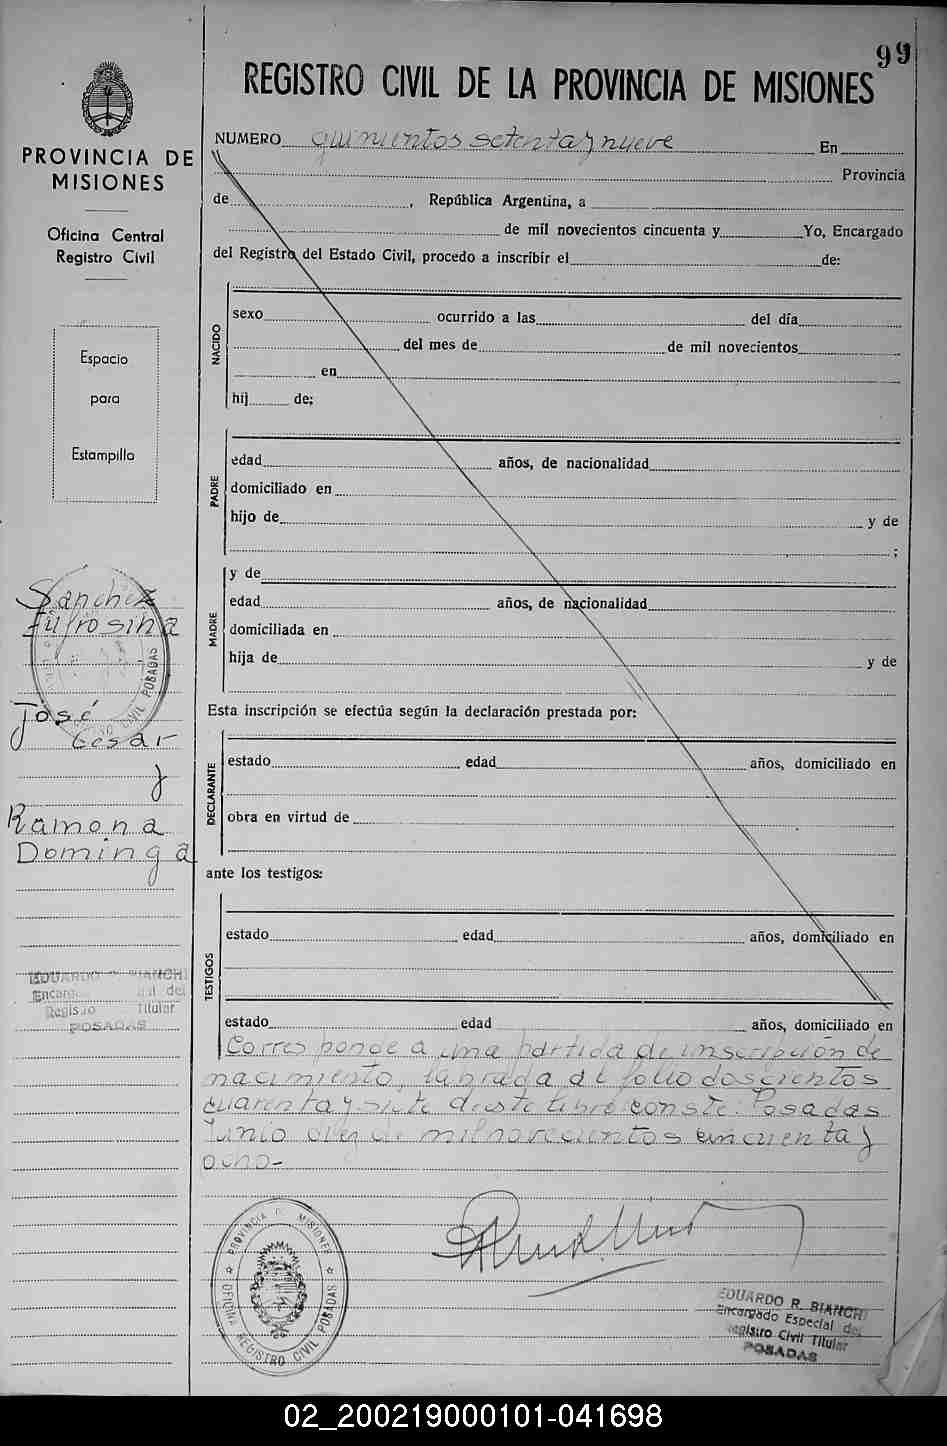 99
REGISTRO CIVIL DE LA PROVINCIA DE MISIONES
PROVINCIA DE
MISIONES
Oficina Central
Registro Civil
Espacio
para
Estampilla
Sanchez
Eufrosina
José
Cesar
y
Ramona
Dominga
EDUARDO R. BIANCHI
Registro Titular
POSADAS
NUMERO quinientos setenta y nueve En
Provincia
de , República Argentina, a
de mil novecientos cincuenta y Yo, Encargado
del Registro del Estado Civil, procedo a inscribir el de:
NACIDO
sexo ocurrido a las del día
del mes de de mil novecientos
en
hij de;
PADRE
edad años, de nacionalidad
domiciliado en
hijo de y de
;
MADRE
y de
edad años, de nacionalidad
domiciliada en
hija de y de
Esta inscripción se efectúa según la declaración prestada por:
DECLARANTE
estado edad años, domiciliado en
obra en virtud de
ante los testigos:
TESTIGOS
estado edad años, domiciliado en
estado edad años, domiciliado en
Corresponde a una partida de inscripción de
nacimiento, labrada al folio doscientos
cuarenta y siete de este libro conste. Posadas
Junio diez de mil novecientos cincuenta y
ocho-
PROVINCIA DE MISIONES
OFICINA REGISTRO CIVIL POSADAS
EDUARDO R. BIANCHI
Encargado Especial del
Registro Civil Titular
POSADAS
02_200219000101-041698